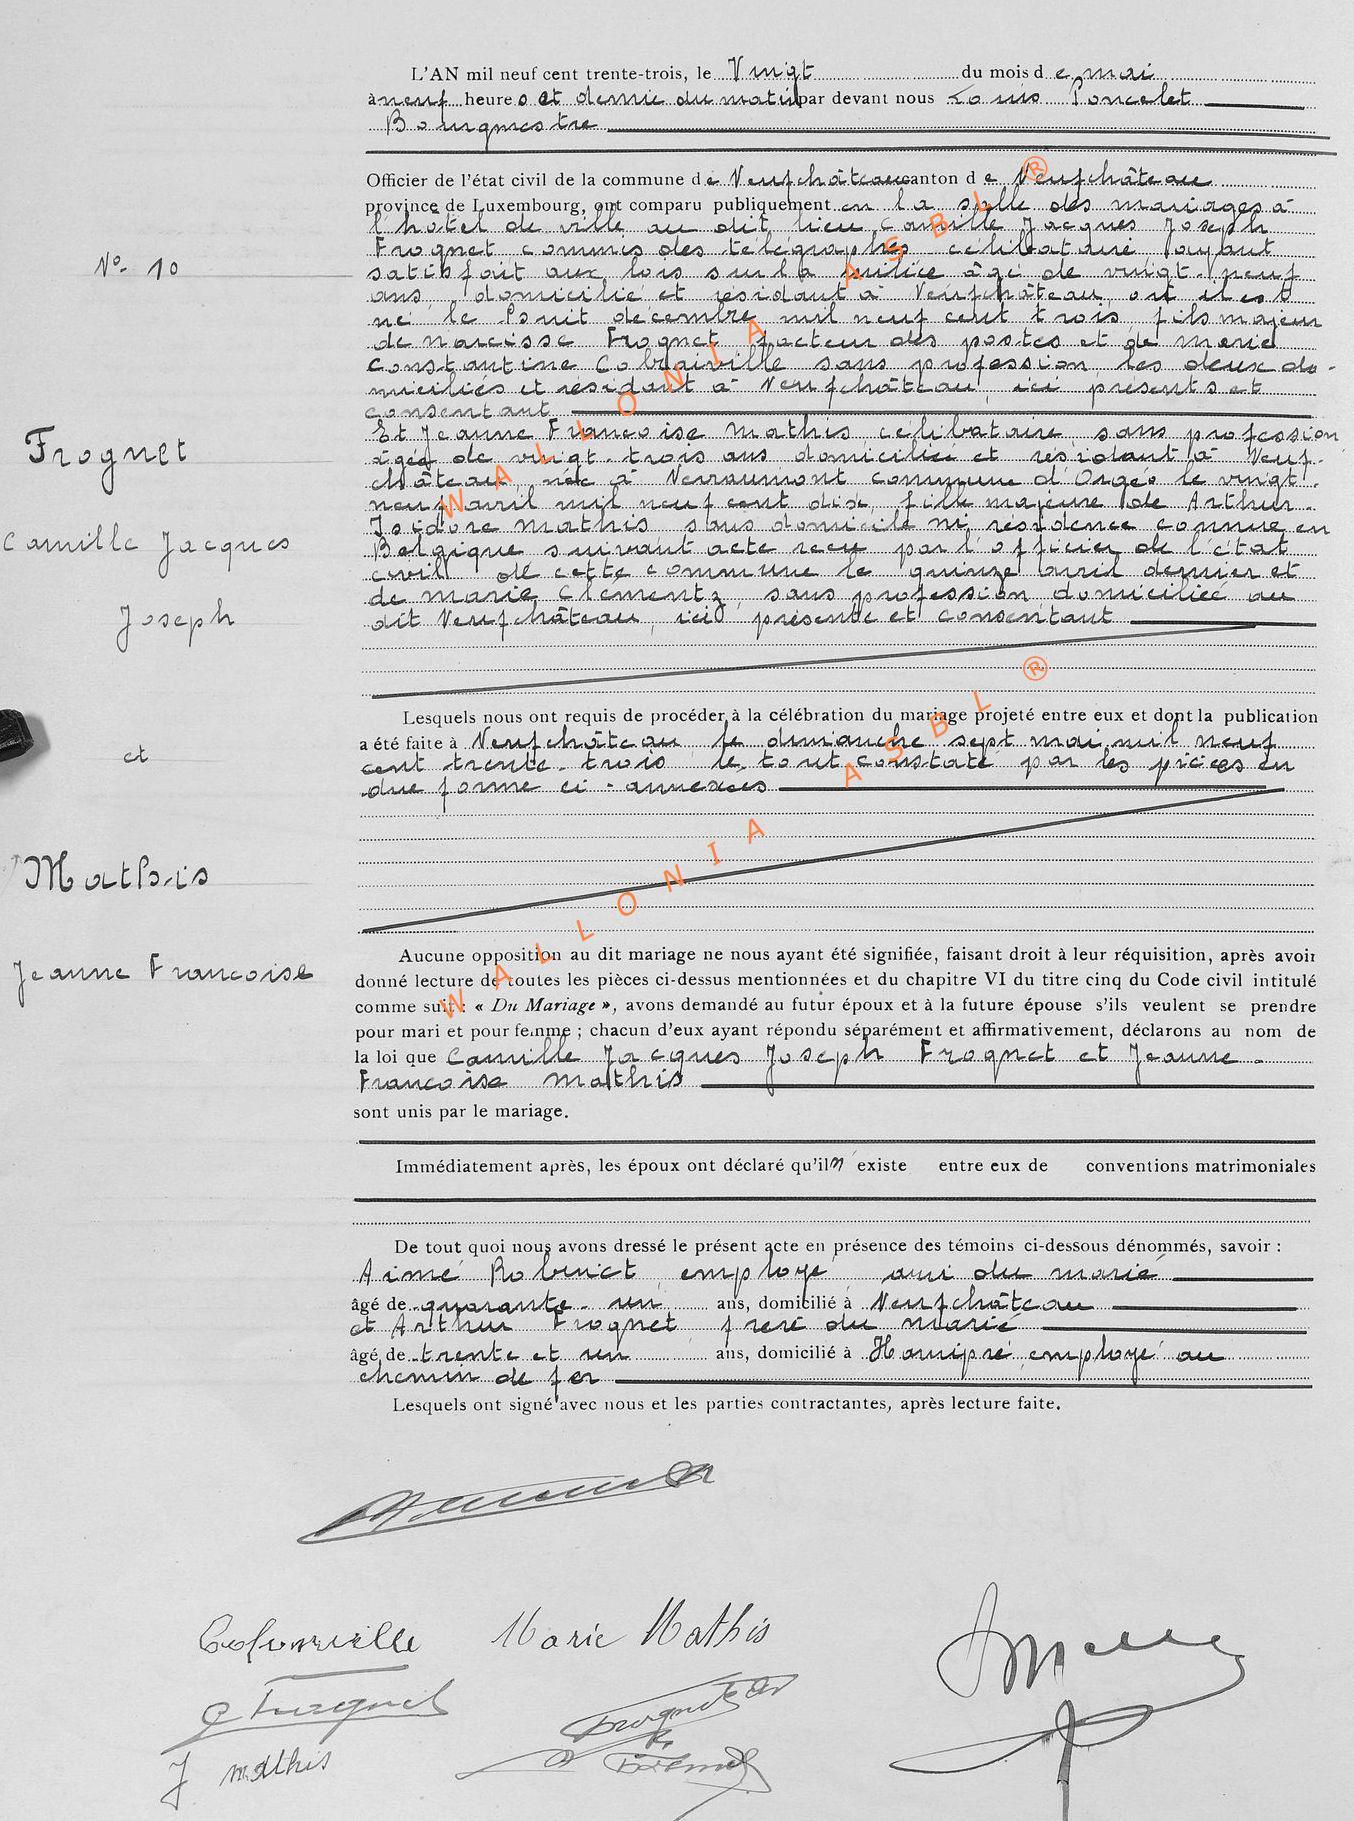 L'AN mil neuf cent trente-trois, le Vingt du mois de mai
à neuf heures et demie du matin par devant nous Louis Poncelet
Bourgmestre
Officier de l'état civil de la commune de Neufchâteau canton de Neufchâteau
province de Luxembourg, ont comparu publiquement en la salle des mariages à
l'hôtel de ville au dit lieu Camille Jacques Joseph
Frognet commis des télégraphes célibataire, ayant
satisfait aux lois sur la milice âgé de vingt-neuf
N° 10
ans, domicilié et résidant à Neufchâteau, où il est
né le huit décembre mil neuf cent trois, fils majeur
de Narcisse Frognet facteur des postes et de Marie
Constantine sans profession, les deux do-
miciliés et résidant à Neufchâteau, ici présents et
consentant
Et Jeanne Francoise Mathis, célibataire, sans profession
Frognet
âgée de vingt-trois ans domiciliée et résidant à Neuf-
château, née à Verraumont commune d'Orgéo le vingt-
neuf avril mil neuf cent dix, fille majeure de Arthur-
Isidore Mathis sans domicile ni résidence connue en
Camille Jacques
Belgique suivant acte recu par l'officier de l'état
civil de cette commune le quinze avril dernier et
de Marie Clémentz, sans profession domiciliée au
Joseph
dit Neufchâteau, ici présente et consentant
Lesquels nous ont requis de procéder à la célébration du mariage projeté entre eux et dont la publication
a été faite à Neufchâteau le dimanche sept mai mil neuf
et
cent trente-trois le tout constaté par les pièces en
due forme ci-annexées
Mathis
Aucune opposition au dit mariage ne nous ayant été signifiée, faisant droit à leur réquisition, après avoir
Jeanne Francoise
donné lecture de toutes les pièces ci-dessus mentionnées et du chapitre VI du titre cinq du Code civil intitulé
comme suit : « Du Mariage », avons demandé au futur époux et à la future épouse s'ils veulent se prendre
pour mari et pour femme ; chacun d'eux ayant répondu séparément et affirmativement, déclarons au nom de
la loi que Camille Jacques Joseph Frognet et Jeanne-
Françoise Mathis
sont unis par le mariage.
Immédiatement après, les époux ont déclaré qu'il n'existe entre eux de conventions matrimoniales
De tout quoi nous avons dressé le présent acte en présence des témoins ci-dessous dénommés, savoir :
Aimé employé ami du marié
âgé de quarante-un ans, domicilié à Neufchâteau
et Arthur Frognet frère du marié
âgé de trente et un ans, domicilié à Hamipré employé au
chemin de fer
Lesquels ont signé avec nous et les parties contractantes, après lecture faite.
Marie Mathis
J mathis
WALLONIA ASBL ®
WALLONIA ASBL ®